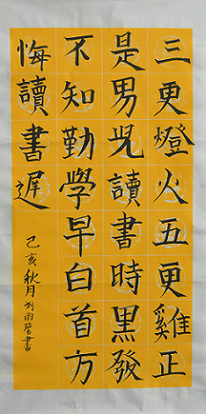 三更燈火五更雞正
是男兒讀書時黑發
不知勤學早白首方
悔讀書遲
己亥秋月刘雨莹書